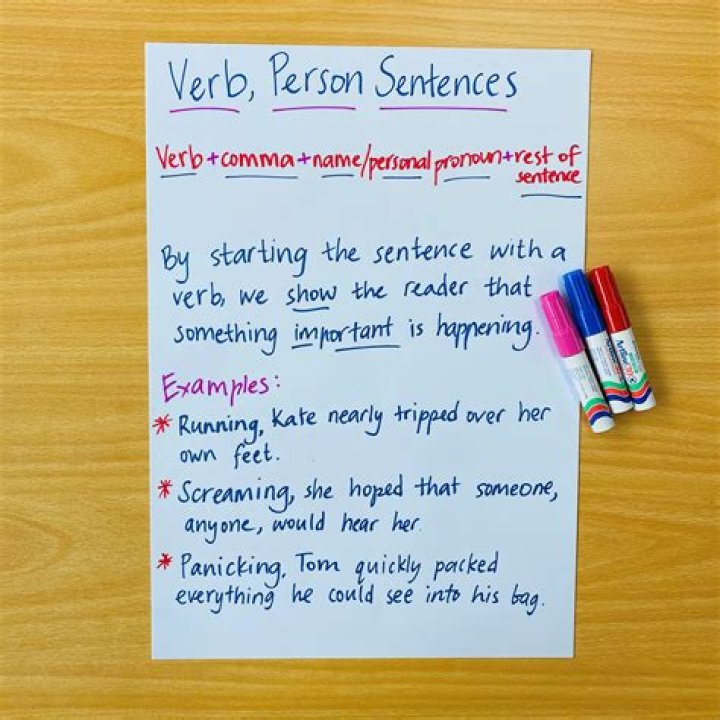 Verb, Person Sentences
Verb+comma+name/personal pronoun+rest of
sentence
By starting the sentence with a
verb, we show the reader that
something important is happening.
Examples:
* Running, Kate nearly tripped over her
own feet.
* Screaming, she hoped that someone,
anyone, would hear her.
* Panicking, Tom quickly packed
everything he could see into his bag.
Artline